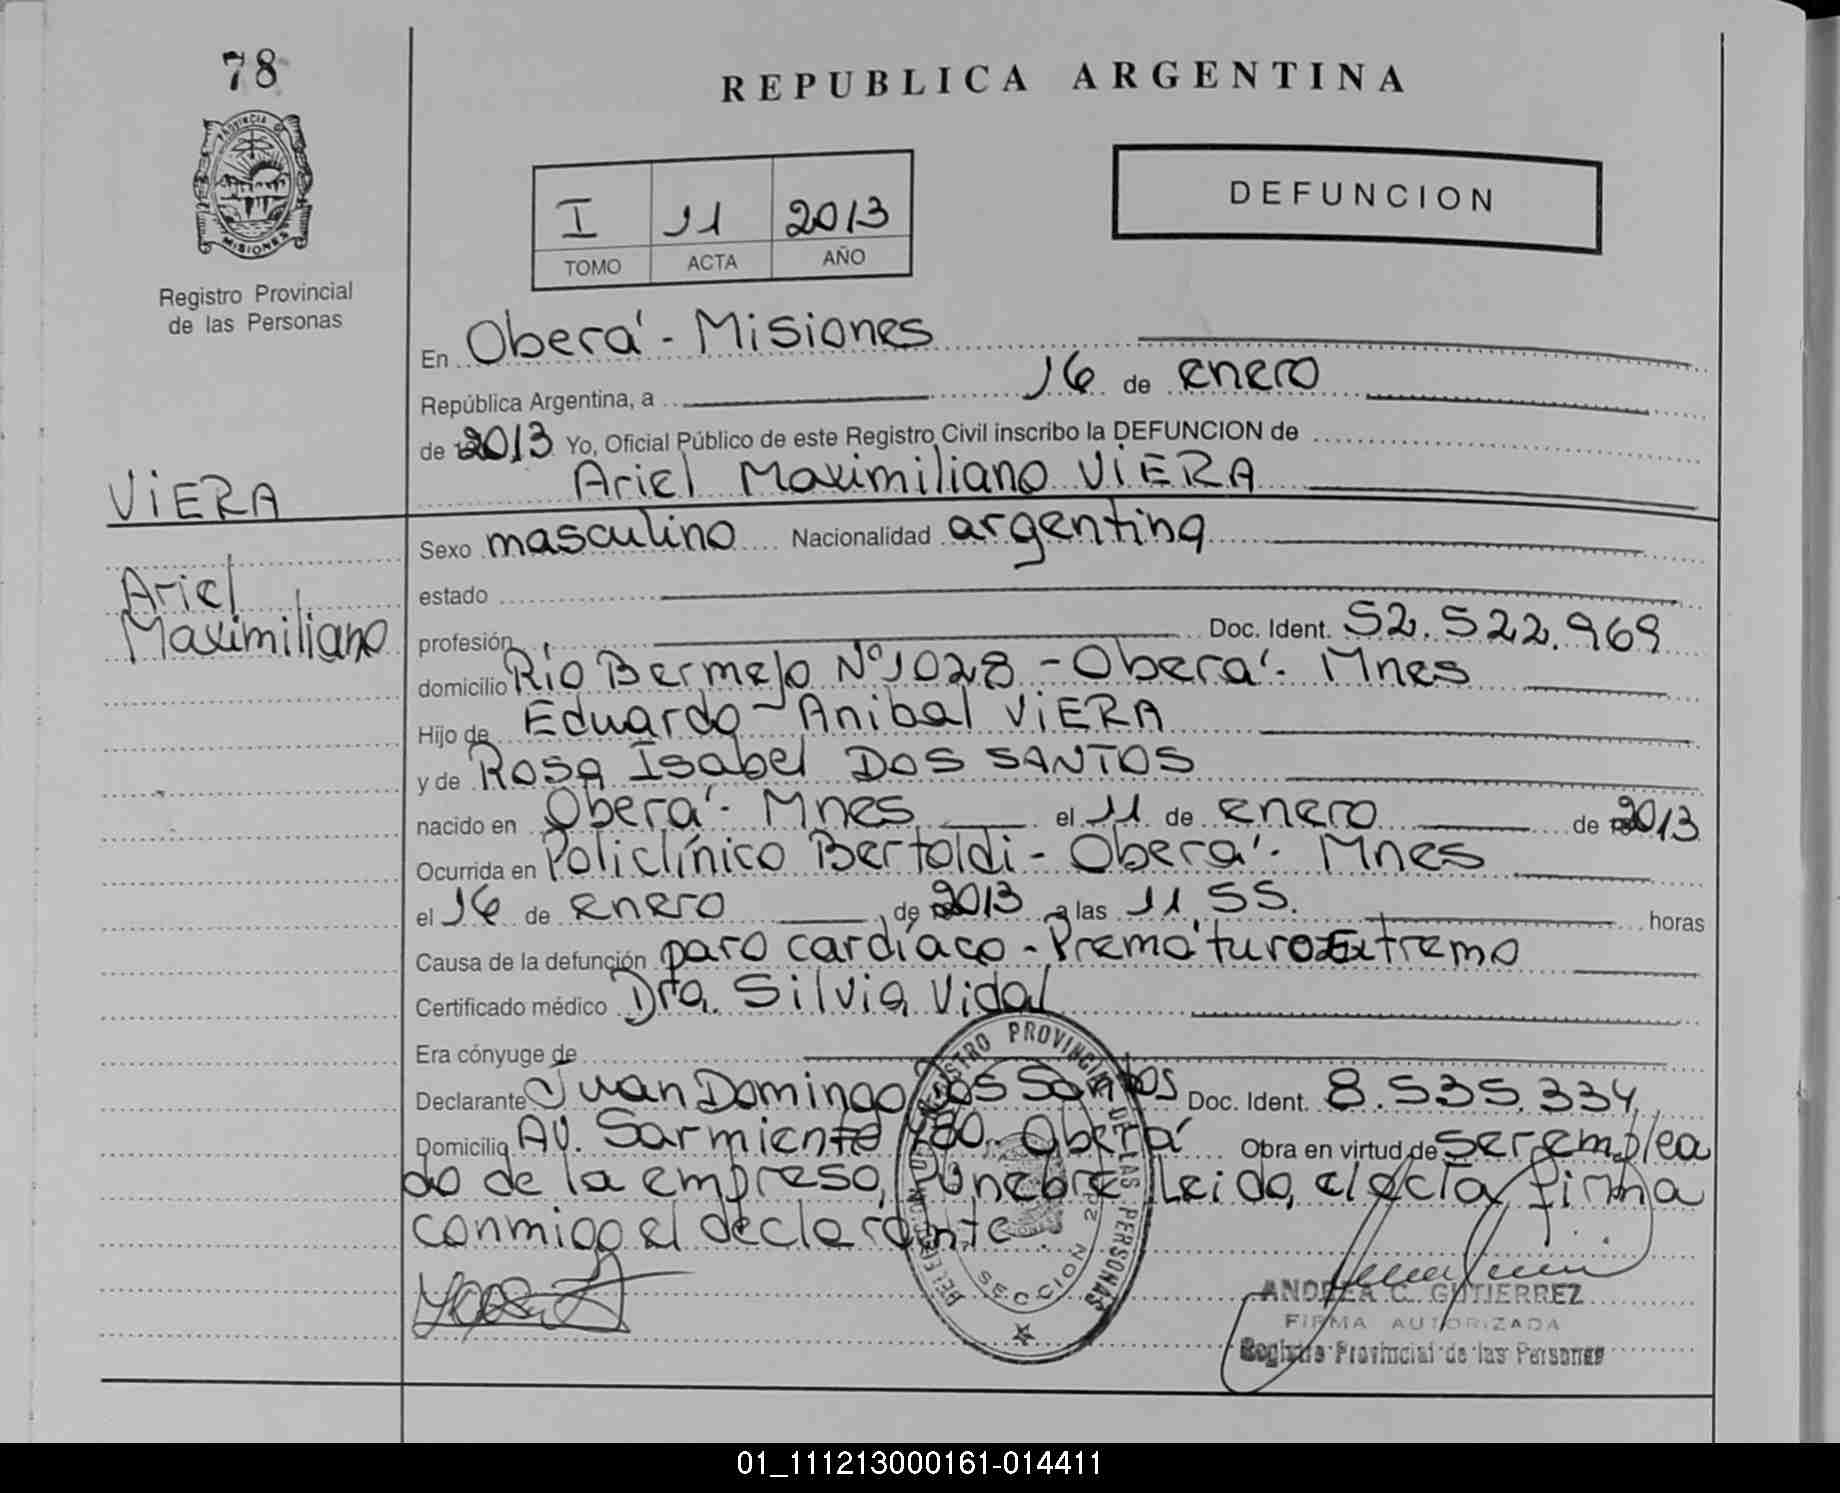 78
PROVINCIA DE
MISIONES
Registro Provincial
de las Personas
REPUBLICA ARGENTINA
I 11 2013
TOMO ACTA AÑO
DEFUNCION
En Oberá - Misiones
República Argentina, a 16 de enero
de 2013 Yo, Oficial Público de este Registro Civil inscribo la DEFUNCION de
Ariel Maximiliano ViERA
ViERA
Ariel
Maximiliano
Sexo masculino Nacionalidad argentina
estado
profesión Doc. Ident. 52.522.969
domicilio Río Bermejo Nº 1028 - Oberá - Mnes
Hijo de Eduardo Anibal ViERA
y de Rosa Isabel DOS SANTOS
nacido en Oberá - Mnes el 11 de enero de 2013
Ocurrida en Policlínico Bertoldi - Oberá - Mnes
el 16 de enero de 2013 a las 11,55. horas
Causa de la defunción paro cardíaco - Prematuro Extremo
Certificado médico Dra. Silvia Vidal
Era cónyuge de
Declarante Juan Domingo Dos Santos Doc. Ident. 8.535.334
Domicilio Av. Sarmiento 780 - Oberá Obra en virtud de ser emplea
do de la empresa, Fúnebre Leido, el acta firma
conmigo el declarante.
REGISTRO PROVINCIAL DE LAS PERSONAS
SECCION 2º
ANDREA C. GUTIERREZ
FIRMA AUTORIZADA
Registro Provincial de las Personas
01_111213000161-014411